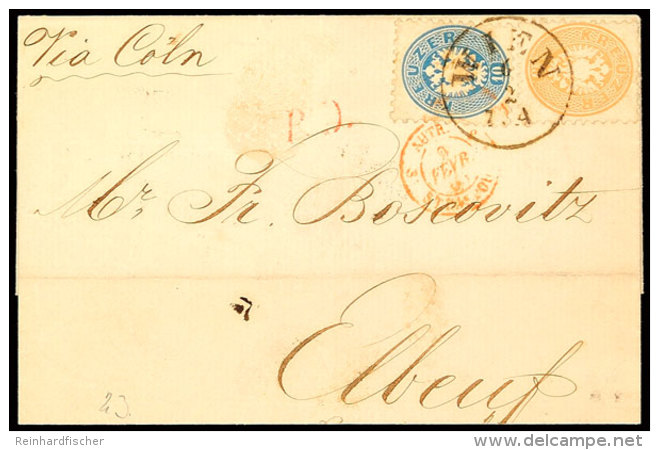 Via Cöln
KREUZER
10
KREUZER
WIEN
2
7. A
P. D.
AUTR.
3
9
FEVR
Mr. Fr. Boscovitz
Elbeuf
23.
Reinhardfischer
www.delcampe.net